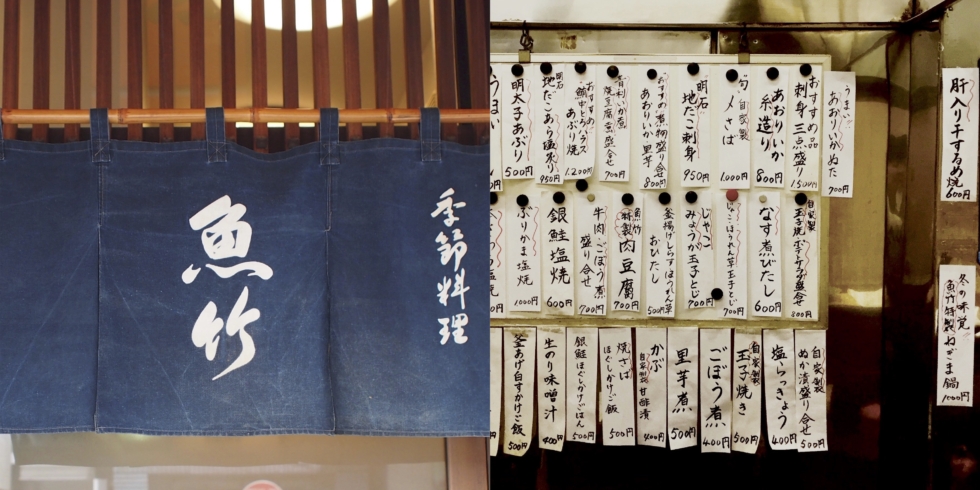 季節料理
魚竹
おすすめ品
刺身三点盛り
1,500円
あおりいか
糸造り
800円
自家製
1,000円
明石
地だこ刺身
950円
おすすめ煮物盛り合せ
あおりいか里芋
800円
700円
あぶり焼
1,200円
明石
地だこあら塩炙り
950円
明太子あぶり
500円
うまい
あおりいかぬた
700円
自家製
玉子焼ポテトサラダ盛合せ
800円
なす煮びたし
600円
700円
じゃこ
みょうが玉子とじ
700円
釜揚げしらすほうれん草
おひたし
500円
魚竹
特製肉豆腐
700円
牛肉・ごぼう煮
盛り合せ
700円
銀鮭塩焼
600円
ぶりかま塩焼
1000円
自家製
ぬか漬盛り合せ
500円
塩らっきょう
400円
自家製
玉子焼き
500円
ごぼう煮
400円
里芋煮
500円
かぶ
自家製甘酢漬
400円
焼さば
ほぐしかけご飯
500円
銀鮭ほぐしかけごはん
500円
生のり味噌汁
400円
釜あげ白すかけご飯
500円
肝入り干するめ焼
600円
冬の味覚
魚竹特製ねぎま鍋
1000円